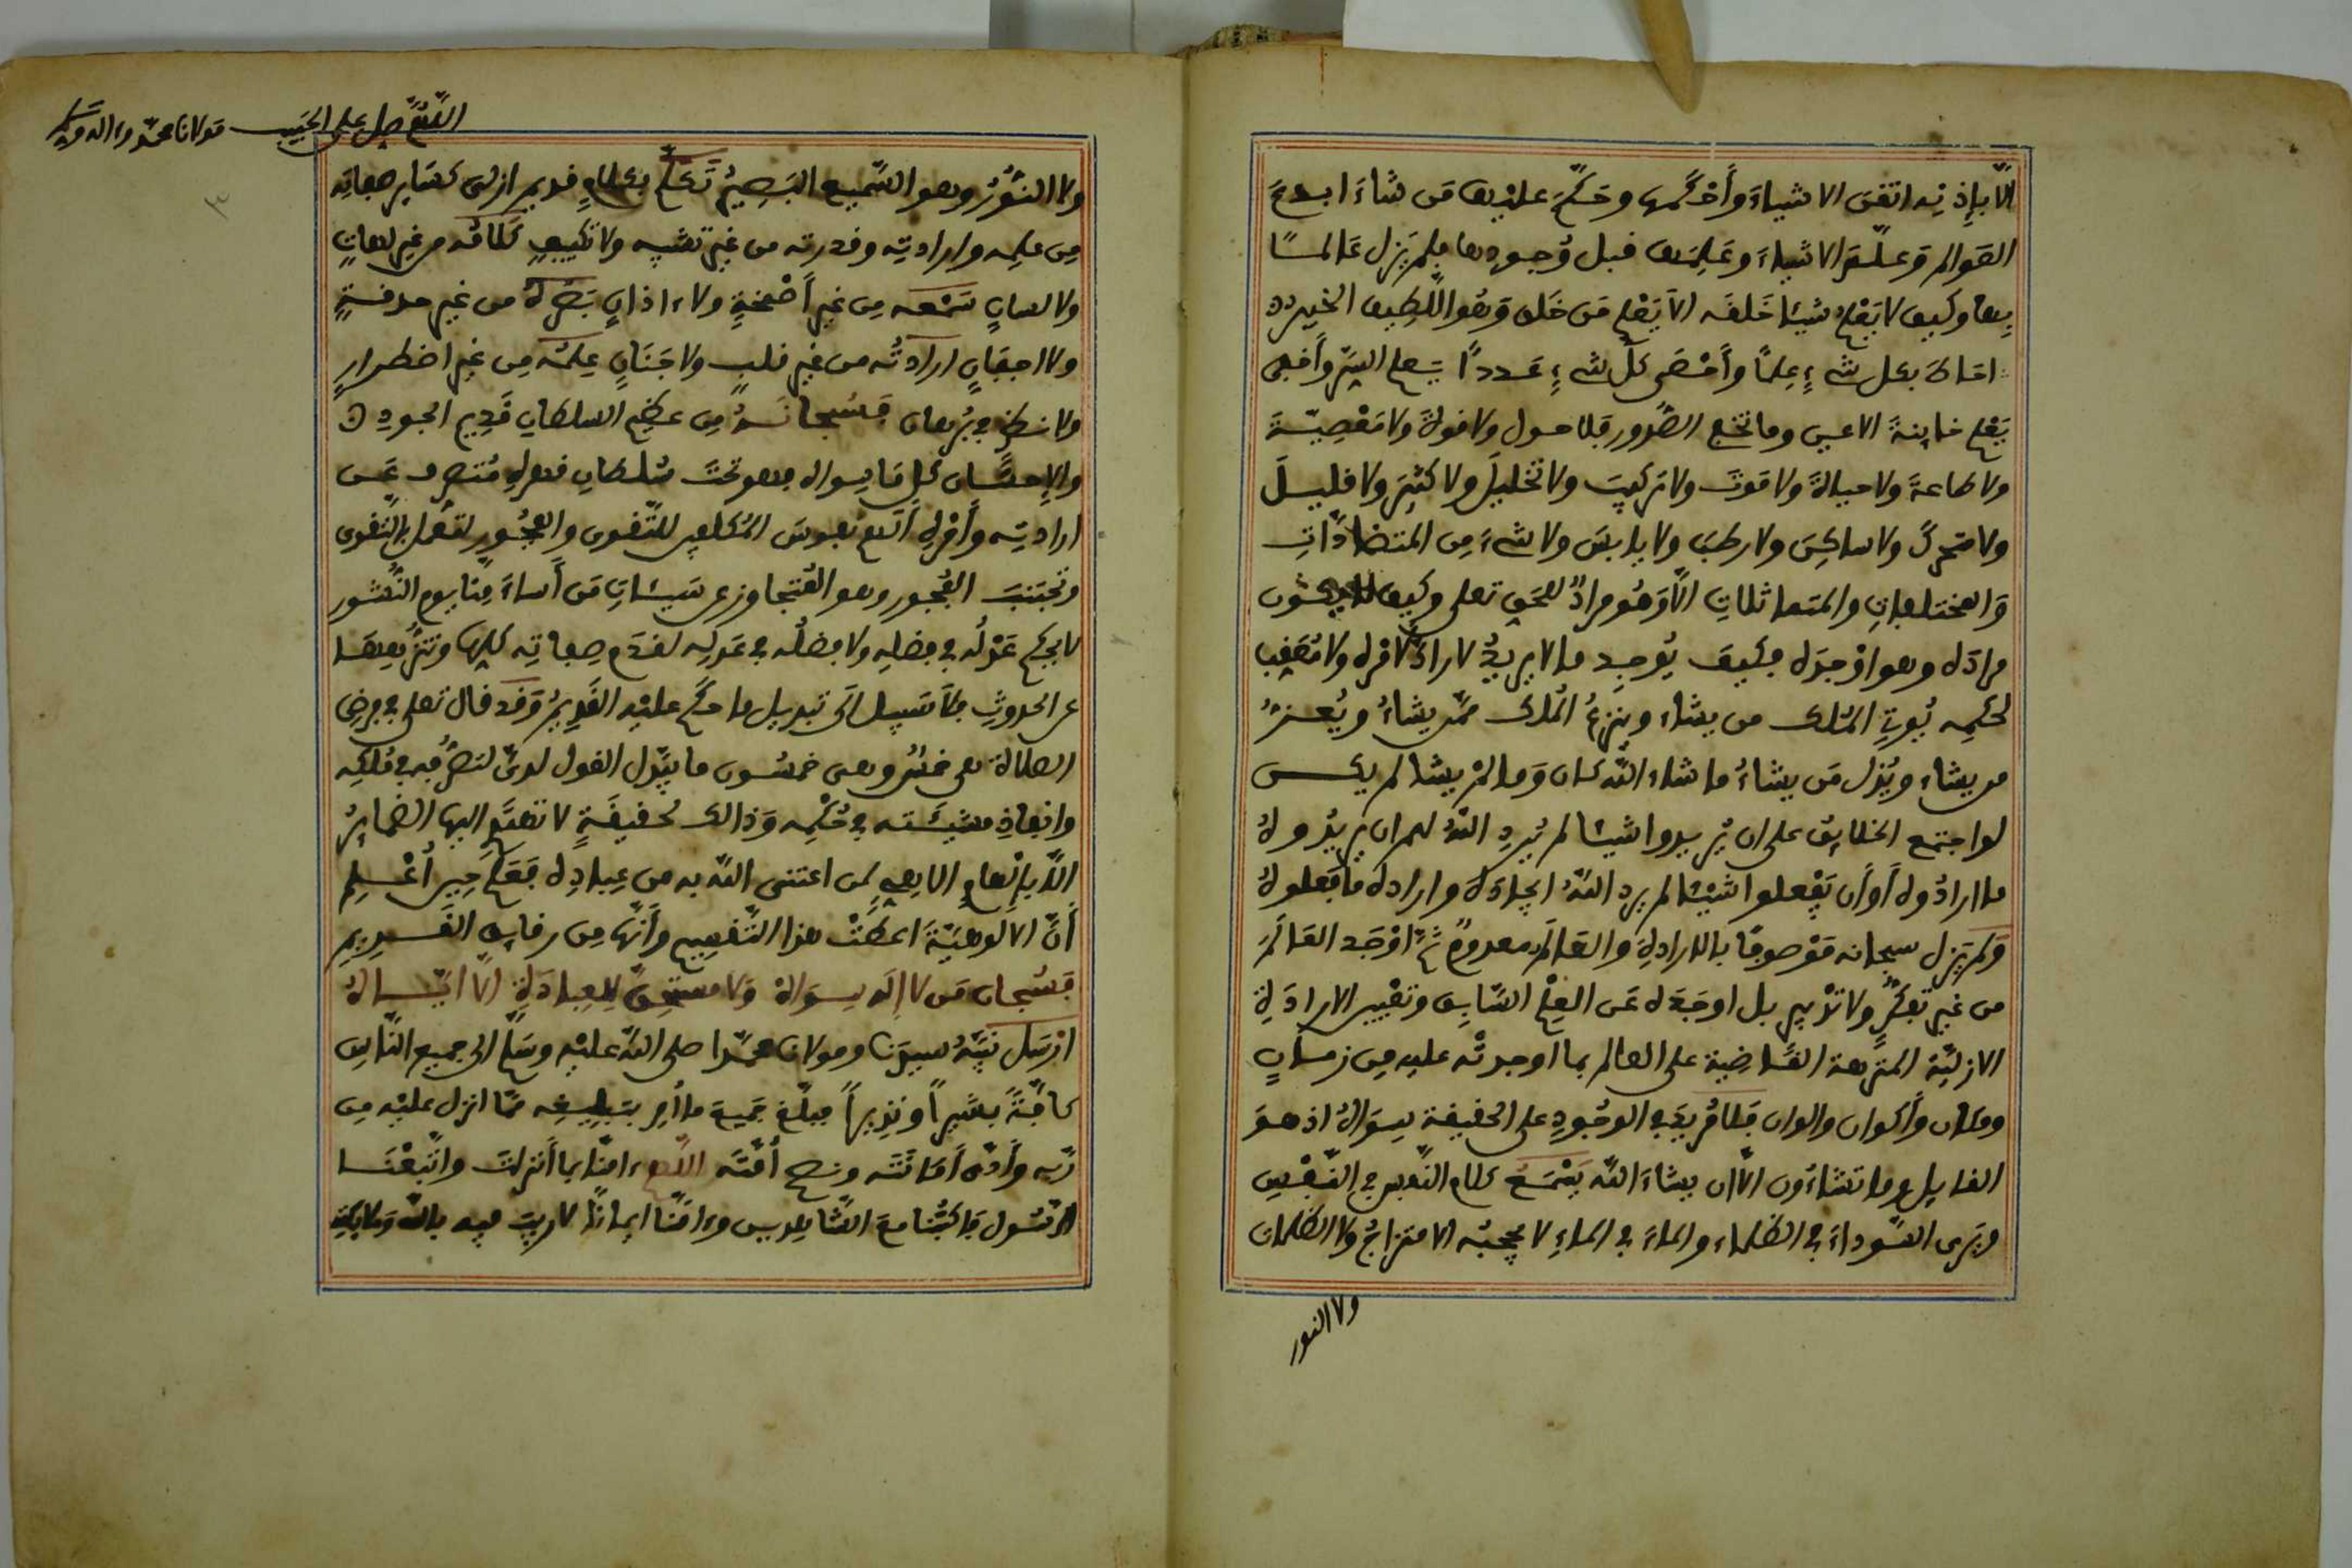 الّا بإذنه اتقن الاشياءَ وأَحْكَمها وحَكّمَ عليها مَن شاءَ ابدعَ
العَوالم وَعلّمَ الاشياءَ وعَلِمَها قبل وُجودها فلم يَزل عَالمًا
بها وكيف لا يَعْلم شيئا خَلَقَه الا يَعْلم مَن خَلق وَهُو اللّطيف الخبير
احَاطَ بكل شيءٍ عِلمًا وأَحْصَى كلَّ شيءٍ عَددًا يَعلم السِّرَّ وأَخفى
يَعْلم خاينةَ الاعين وما تخفى الصُّدور فلا حول ولا قوةَ ولا مَعْصِيّةَ
ولا طاعةَ ولا حياةَ ولا مَوتَ ولا تركيبَ ولا تحليلَ ولا كثيرَ ولا قليلَ
ولا متحركَ ولا ساكِنَ ولا رطبَ ولا يابسَ ولا شيءَ مِن المتضادّاتِ
وَالمختلفاتِ والمتماثلاتِ الّا وَهُو مرادٌ للحَق تعلى وكيف لا يكون
مرادَه وهو اوْجدَه فكيف يُوجِد ما لا يريدُ لا رادَّ لأمْرِه ولا مُعَقِّبَ
لحُكمِه يُوتِي المُلك من يشاء وينزعُ المُلك ممّن يشاءُ ويُعزُّ
من يشاء ويُذل مَن يشاءُ ما شاء اللّه كان وَما لمْ يشا لم يكن
لو اجتمع الخلائق على ان يُريدوا شيئا لم يُردِ اللّهُ لهم ان يريدُوهُ
ما ارادُوه أَوْ أَن يَفْعلوا شَيْئا لم يرد اللّهُ ايجادَهُ وارادهُ ما فَعلوهُ
وَلم يَزل سبحانه مَوْصوفًا بالارادةِ وَالعَالَم معدومٌ ثمّ اوْجَد العَالَمَ
من غير تفكّرٍ ولا تدْبير بل اوجَدَه عَن العِلْم السّابِق وتعْيين الارادَةِ
الازليّة المنزّهة القاضية على العالم بما اوجدتْه عليه مِن زمانٍ
ومكان وأَكوان والوان فلا مُريدَ في الوجُودِ على الحقيقة سِوَاهُ اذ هوَ
القايل وما تشاءُون الّا ان يشاءَ اللّه يَسْمَع كلام النّفس في النّفْسِ
ويَرى السّوداءَ في الظلماء والماءَ في الماءِ لا يحجبُه الامتزاجُ ولا الظلمات
ولا النور
اللهُمَّ صل على الحَبيب مَولانا محمّد وءاله
ولا النُّورُ وهو السّميع البَصِيرُ تَكَلَّم بكلامٍ قديم ازلى كسَاير صفاتِه
مِن عِلمِه وإرادتِه وقدرته من غير تشبيه ولا تكييفٍ كَلامُه من غير لهاتٍ
ولا لسانٍ سَمْعه مِن غير أصْمخةٍ ولاءاذانٍ بَصَرهُ من غير حدقةٍ
ولا اجفانٍ ارادتُه من غير قلبٍ ولا جَنَانٍ عِلمُه مِن غير اضطرارٍ
ولا نظرٍ في بُرهان فسُبحانَه مِن عظيم السلطانِ قَديم الجودِ
والإحسَان كل مَا سِواه فهو تحتَ سُلطانِ قهره مُتصرف عَن
ارادتِه وأمْرِه أَلهم نفوسَ المُكلفين للتّقوى والفجُورِ لتعمل بالتّقوى
وتجتنبَ الفُجور وهو المُتجاوز عن سَيئاتِ مَن أَساءَ مِنّا يوم النُّشور
لا يحكم عَدْلُه في فضلِه ولا فضلُه في عَدلِه لقدَم صفاتِه كلها وتنزُّهها
عن الحدوثِ فلا سَبيل الَى تبديل ما حكم عليْه القَدِيمُ وَقد قال تعلى في فرض
الصلاة هي خمسٌ وهي خمسُون ما يبَدّل القول لديّ لتصرُّفِهِ في مُلكه
وانفاذِ مشيئته في حُكْمِه وَذالك لحقيقَةٍ لا تهتَدِي اليها الضمايرُ
الّا بإلْهامٍ الاهي لمن اعتنى اللّه به من عِبادِه فعَلِم حِين أُعْلِم
أَنّ الالُوهيّةَ اعطتْ هذا التّقسيم وأَنّها مِن رقايق القَديم
فسُبحان مَن لا إلَه سِوَاهُ وَلا مستحقّ للعِبادَةِ الّا ايّاهُ
ارْسَل نبيّهُ سيّدَنا ومولانا محمّدا صلى اللّه عليْه وسَلّم الى جميع النّاسِ
كافّةً بشيراً ونذيراً فبلّغ جَميع ما أُمِر بتبليغه ممّا انزل عليْه مِن
رَبّه وأَدّى أَمَانَتَه ونصَح أُمّتَه اللّهم ءامنّا بما أَنزلت واتّبعْنَا
الرّسُول فاكتُبْنا معَ الشّاهِدين وءامَنّا ايمانًا لا ريبَ فيه باللّه وَملايكتِه